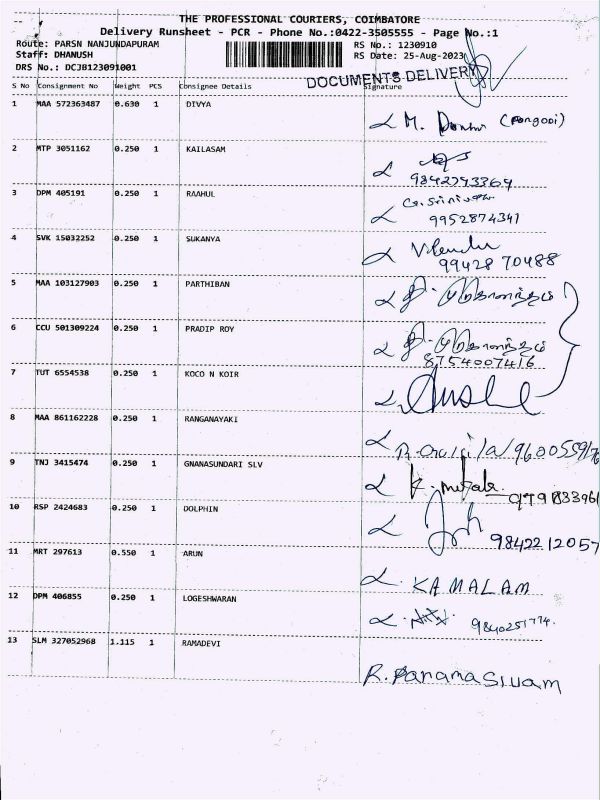 THE PROFESSIONAL COURIERS, COIMBATORE
Delivery Runsheet - PCR - Phone No.:0422-3505555 - Page No.:1
Route: PARSN NANJUNDAPURAM RS No.: 1230910
Staff: DHANUSH RS Date: 25-Aug-2023
DRS No.: DCJB123091001
DOCUMENTS DELIVERY
S No Consignment No Weight PCS Consignee Details Signature
1 MAA 572363487 0.630 1 DIVYA
M.
2 MTP 3051162 0.250 1 KAILASAM
9842793364
3 DPM 405191 0.250 1 RAAHUL
G. Srinivasan
9952874341
4 SVK 15032252 0.250 1 SUKANYA
99428 70488
5 MAA 103127903 0.250 1 PARTHIBAN
6 CCU 501309224 0.250 1 PRADIP ROY
8754007416
7 TUT 6554538 0.250 1 KOCO N KOIR
8 MAA 861162228 0.250 1 RANGANAYAKI
9 TNJ 3415474 0.250 1 GNANASUNDARI SLV
10 RSP 2424683 0.250 1 DOLPHIN
9842212057
11 MRT 297613 0.550 1 ARUN
KAMALAM
12 DPM 406855 0.250 1 LOGESHWARAN
13 SLM 327052968 1.115 1 RAMADEVI
R. Paramasivam